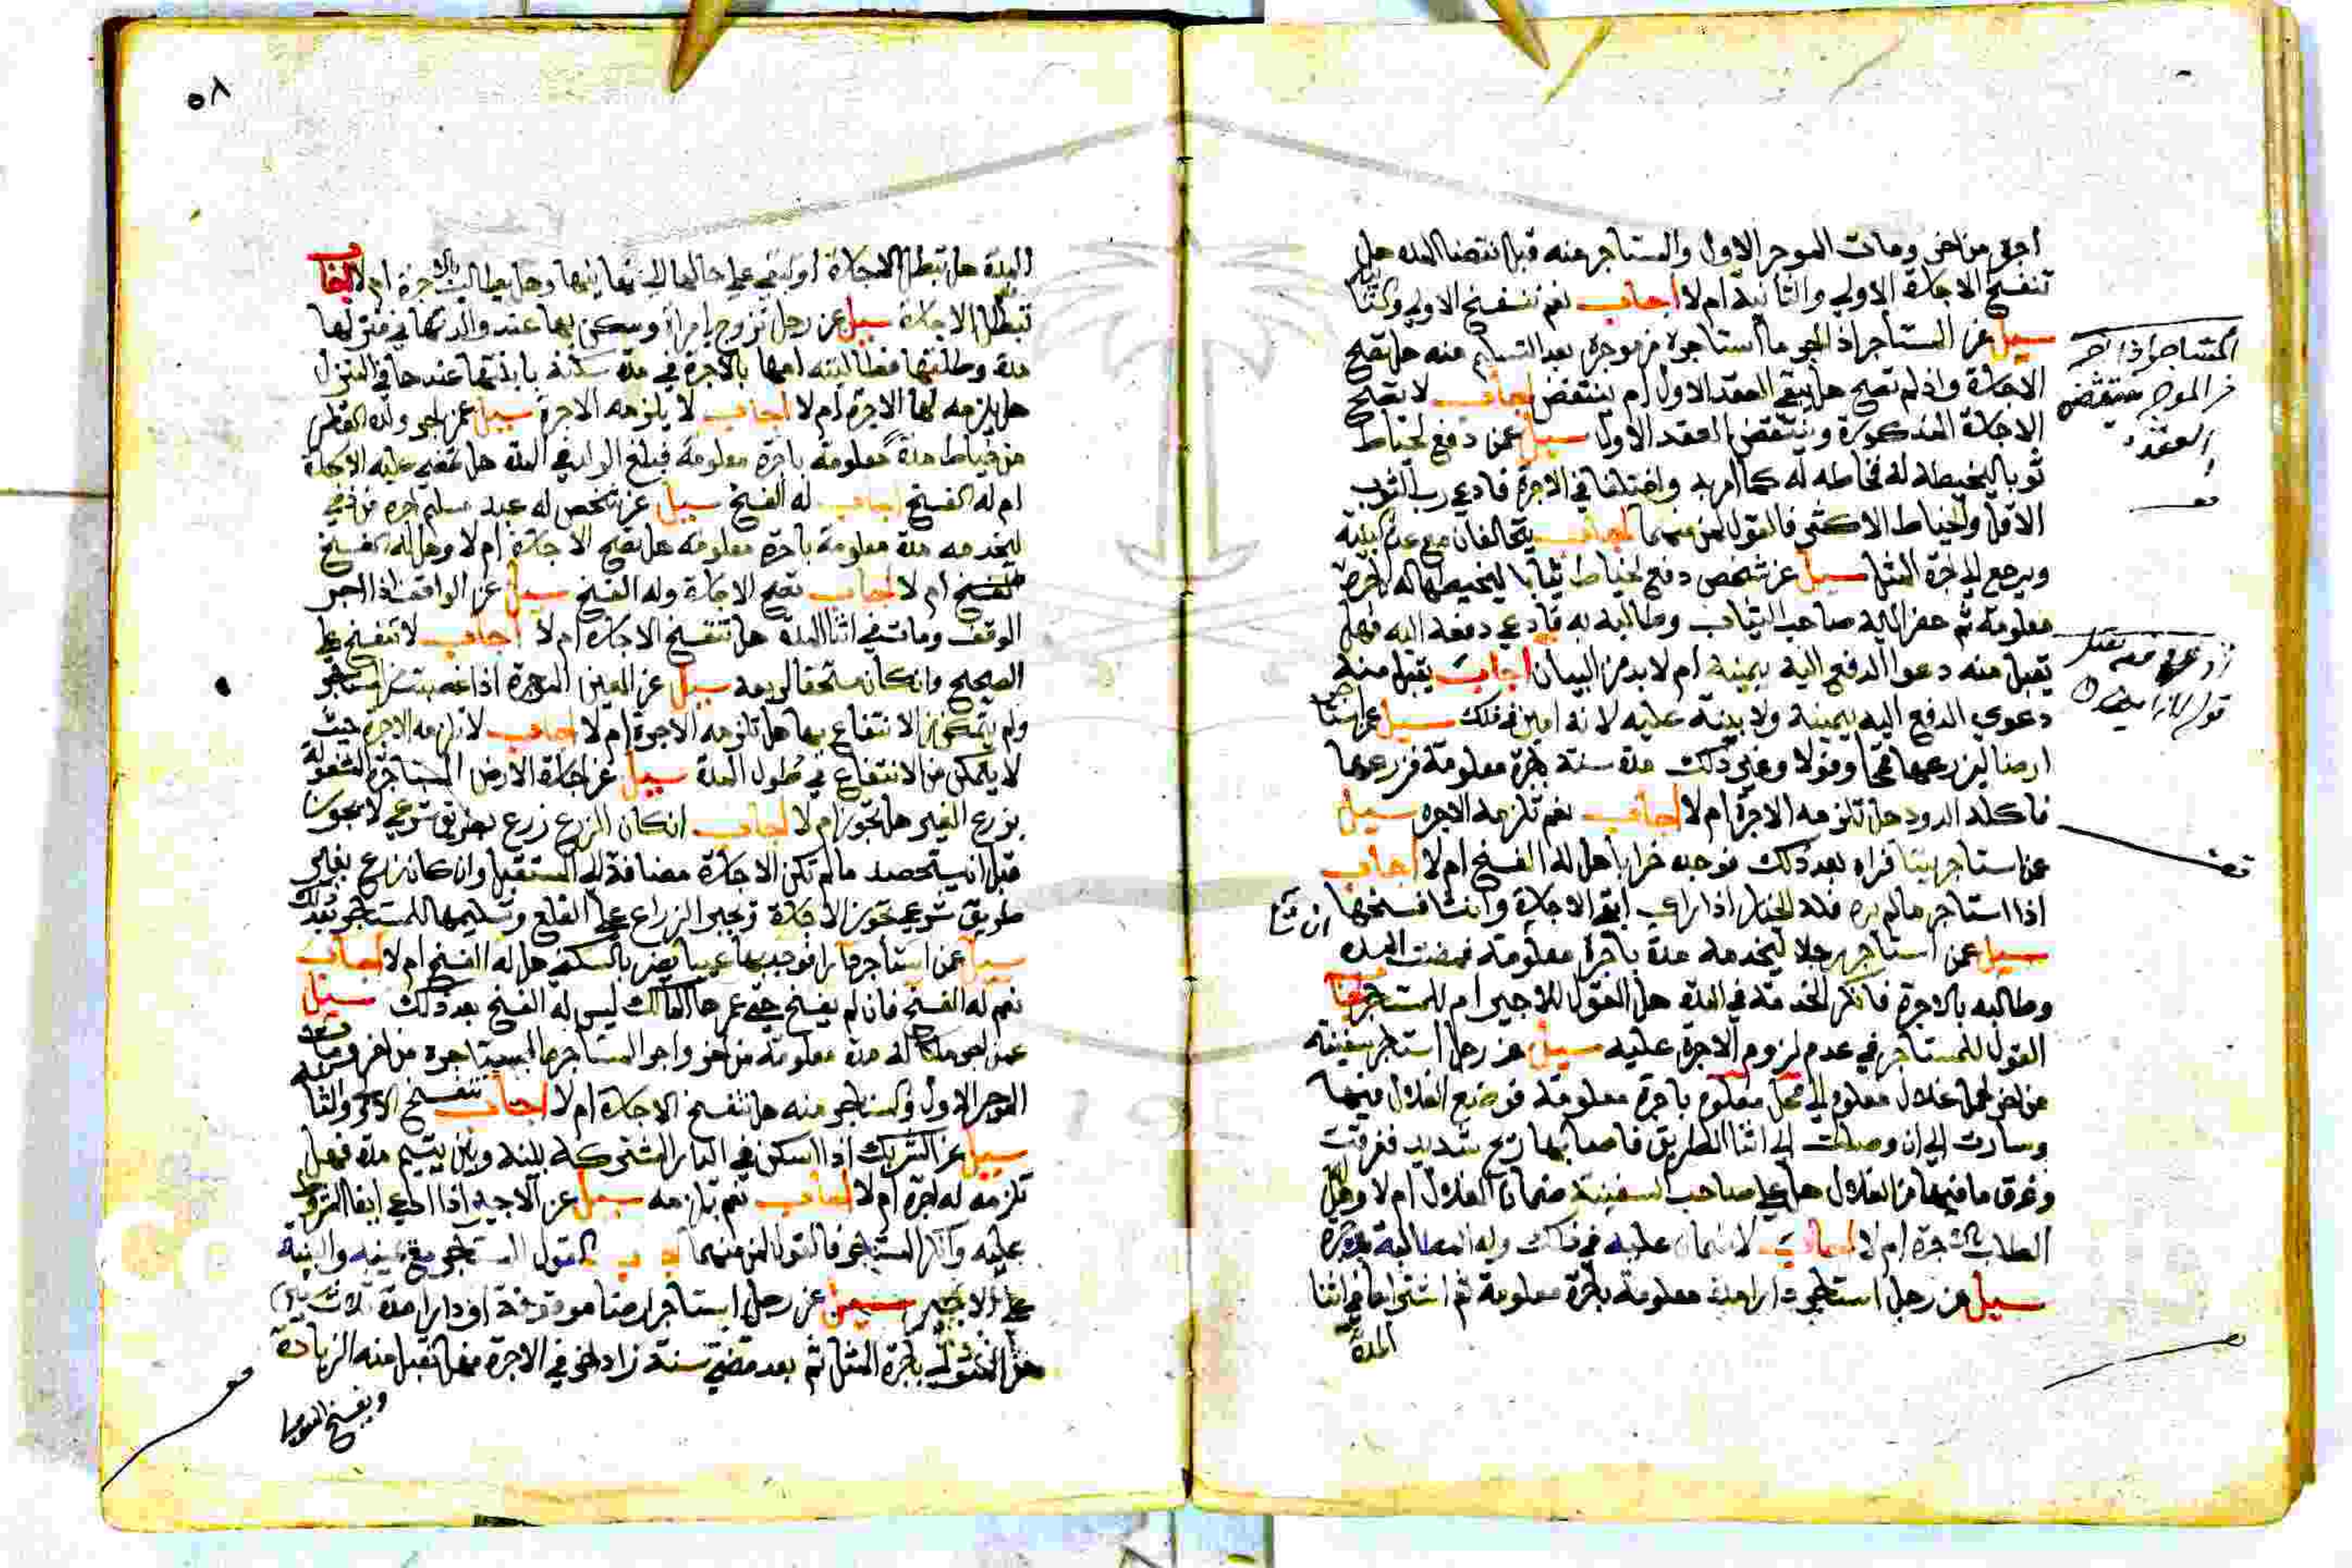 اجره من اخر ومات الموجر الاول والمستاجر منه قبل انقضا المده هل
تنفسخ الاجارة الاولي والثانية ام لا اجاب نعم تنفسخ الاولي وكذا
سيل عن المستاجر اذا اجر ما استاجره من موجره بعد التسليم منه هل تصح
الاجارة واذا لم تصح هل يبقي العقد الاول ام ينتقض اجاب لا تصح
الاجارة المذكورة وينتقض العقد الاول سيل عمن دفع لخياط
ثوبا ليخيطه له فخاطه له كما امر به واختلفا في الاجرة فادعي رب الثوب
الاقل والخياط الاكثر فالقول لمن منهما اجاب يتحالفان مع عدم البينة
ويرجع الي اجرة المثل سيل عن شخص دفع لخياط ثيابا ليخيطها له باجرة
معلومة ثم حضر اليه صاحب الثياب وطالبه به فادعي دفعه اليه فهل
تقبل منه دعوا الدفع اليه بيمينه ام لا بد من البيان اجاب يقبل منه
دعوي الدفع اليه بيمينه ولا بينة عليه لانه امين في ذلك سيل عن استاجر
ارضا ليزرعها قمحا وفولا وغير ذلك مدة سنة باجرة معلومة فزرعها
فاكله الدود هل تلزمه الاجرة ام لا اجاب نعم تلزمه الاجره سيل
عن استاجر بيتا فراه بعد ذلك فوجده خرابا هل له الفسخ ام لا اجاب
اذا استاجر مالم يره فله الخيار اذا راه ابقي الاجارة وان شا فسخها
ان شا
سيل عمن استاجر رجلا ليخدمه مدة باجرة معلومة فمضت المده
وطالبه بالاجرة فانكر الخدمة في المدة هل القول للاجير ام للمستاجر
القول للمستاجر في عدم لزوم الاجرة عليه سيل عن رجل استاجر سفينة
من اخر لحمل غلال معلوم الي محل معلوم باجرة معلومة فوضع الغلال فيها
وسارت الي ان وصلت الي اثنا الطريق فاصابها ريح شديد فغرقت
وغرق ما فيها من الغلال هل علي صاحب السفينة ضمان الغلال ام لا وهل له
الطلب بالاجرة ام لا اجاب لا ضمان عليه في ذلك وله المطالبة بالاجرة
سيل عن رجل استاجر دارا مدة معلومة باجرة معلومة ثم اشتراها في اثنا
المدة
المستاجر اذا اجر
من الموجر ينتقض
العقد
٥٨
المدة هل تبطل الاجارة او تبقي علي حالها الي نهايتها وهل يطالب بالاجرة ام لا اجاب
تبطل الاجارة سيل عن رجل تزوج بامراة وسكن بها عند والدتها في منزلها
مدة وطلقها فطالبته امها بالاجرة في مدة سكنه بابنتها عندها في المنزل
هل يلزمه لها الاجرة ام لا اجاب لا يلزمه الاجرة سيل عمن اجر ولده القاصر
من خياط مدة معلومة باجرة معلومة فبلغ الولد في المدة هل تمضي عليه الاجارة
ام له الفسخ اجاب له الفسخ سيل عن شخص له عبد مسلم اجره من ذمي
ليخدمه مدة معلومة باجرة معلومة هل تصح الاجارة ام لا وهل له الفسخ
ام لا اجاب تصح الاجارة وله الفسخ سيل عن الواقف اذا اجر
الوقف ومات في اثنا المدة هل تنفسخ الاجارة ام لا اجاب لا تنفسخ علي
الصحيح وان كان مستحقا لريعه سيل عن العين الموجرة اذا غصبت من المستاجر
ولم يتمكن من الانتفاع بها هل تلزمه الاجرة ام لا اجاب لا تلزمه الاجرة حيث
لا يتمكن من الانتفاع في طول المدة سيل عن اجارة الارض المستاجرة المشغولة
بزرع الغير هل تجوز ام لا اجاب ان كان الزرع زرع بطريق شرعي لا يجوز
قبل ان يستحصد مالم تكن الاجارة مضافة الي المستقبل وان كان زرع بغير
طريق شرعي تجوز الاجارة ويجبر الزراع علي القلع وتسليمها للمستاجر بعد ذلك
سيل عن استاجر دارا فوجد بها عيبا يضر بالسكني هل له الفسخ ام لا اجاب
نعم له الفسخ فان لم يفسخ حتي عمرها المالك ليس له الفسخ بعد ذلك سيل
عمن اجر ملكا له مدة معلومة من اخر واجر المستاجر ما استاجره من اخر ومات
الموجر الاول والمستاجر منه هل تنفسخ الاجارة ام لا اجاب تنفسخ الاولي والثانية
سيل عن الشريك اذا اسكن في الدار المشتركة بينه وبين يتيم مدة فهل
تلزمه له اجرة ام لا اجاب نعم تلزمه سيل عن الاجير اذا ادعي ايفا العمل
عليه وانكر المستاجر فالقول لمن منهما اجاب القول للمستاجر مع يمينه والبينة
علي الاجير سيل عن رجل استاجر ارضا موقوفة او دارا مدة ثلاث سنين
من المتولي باجرة المثل ثم بعد مضي سنة زاد اخر في الاجرة فهل تقبل منه الزيادة